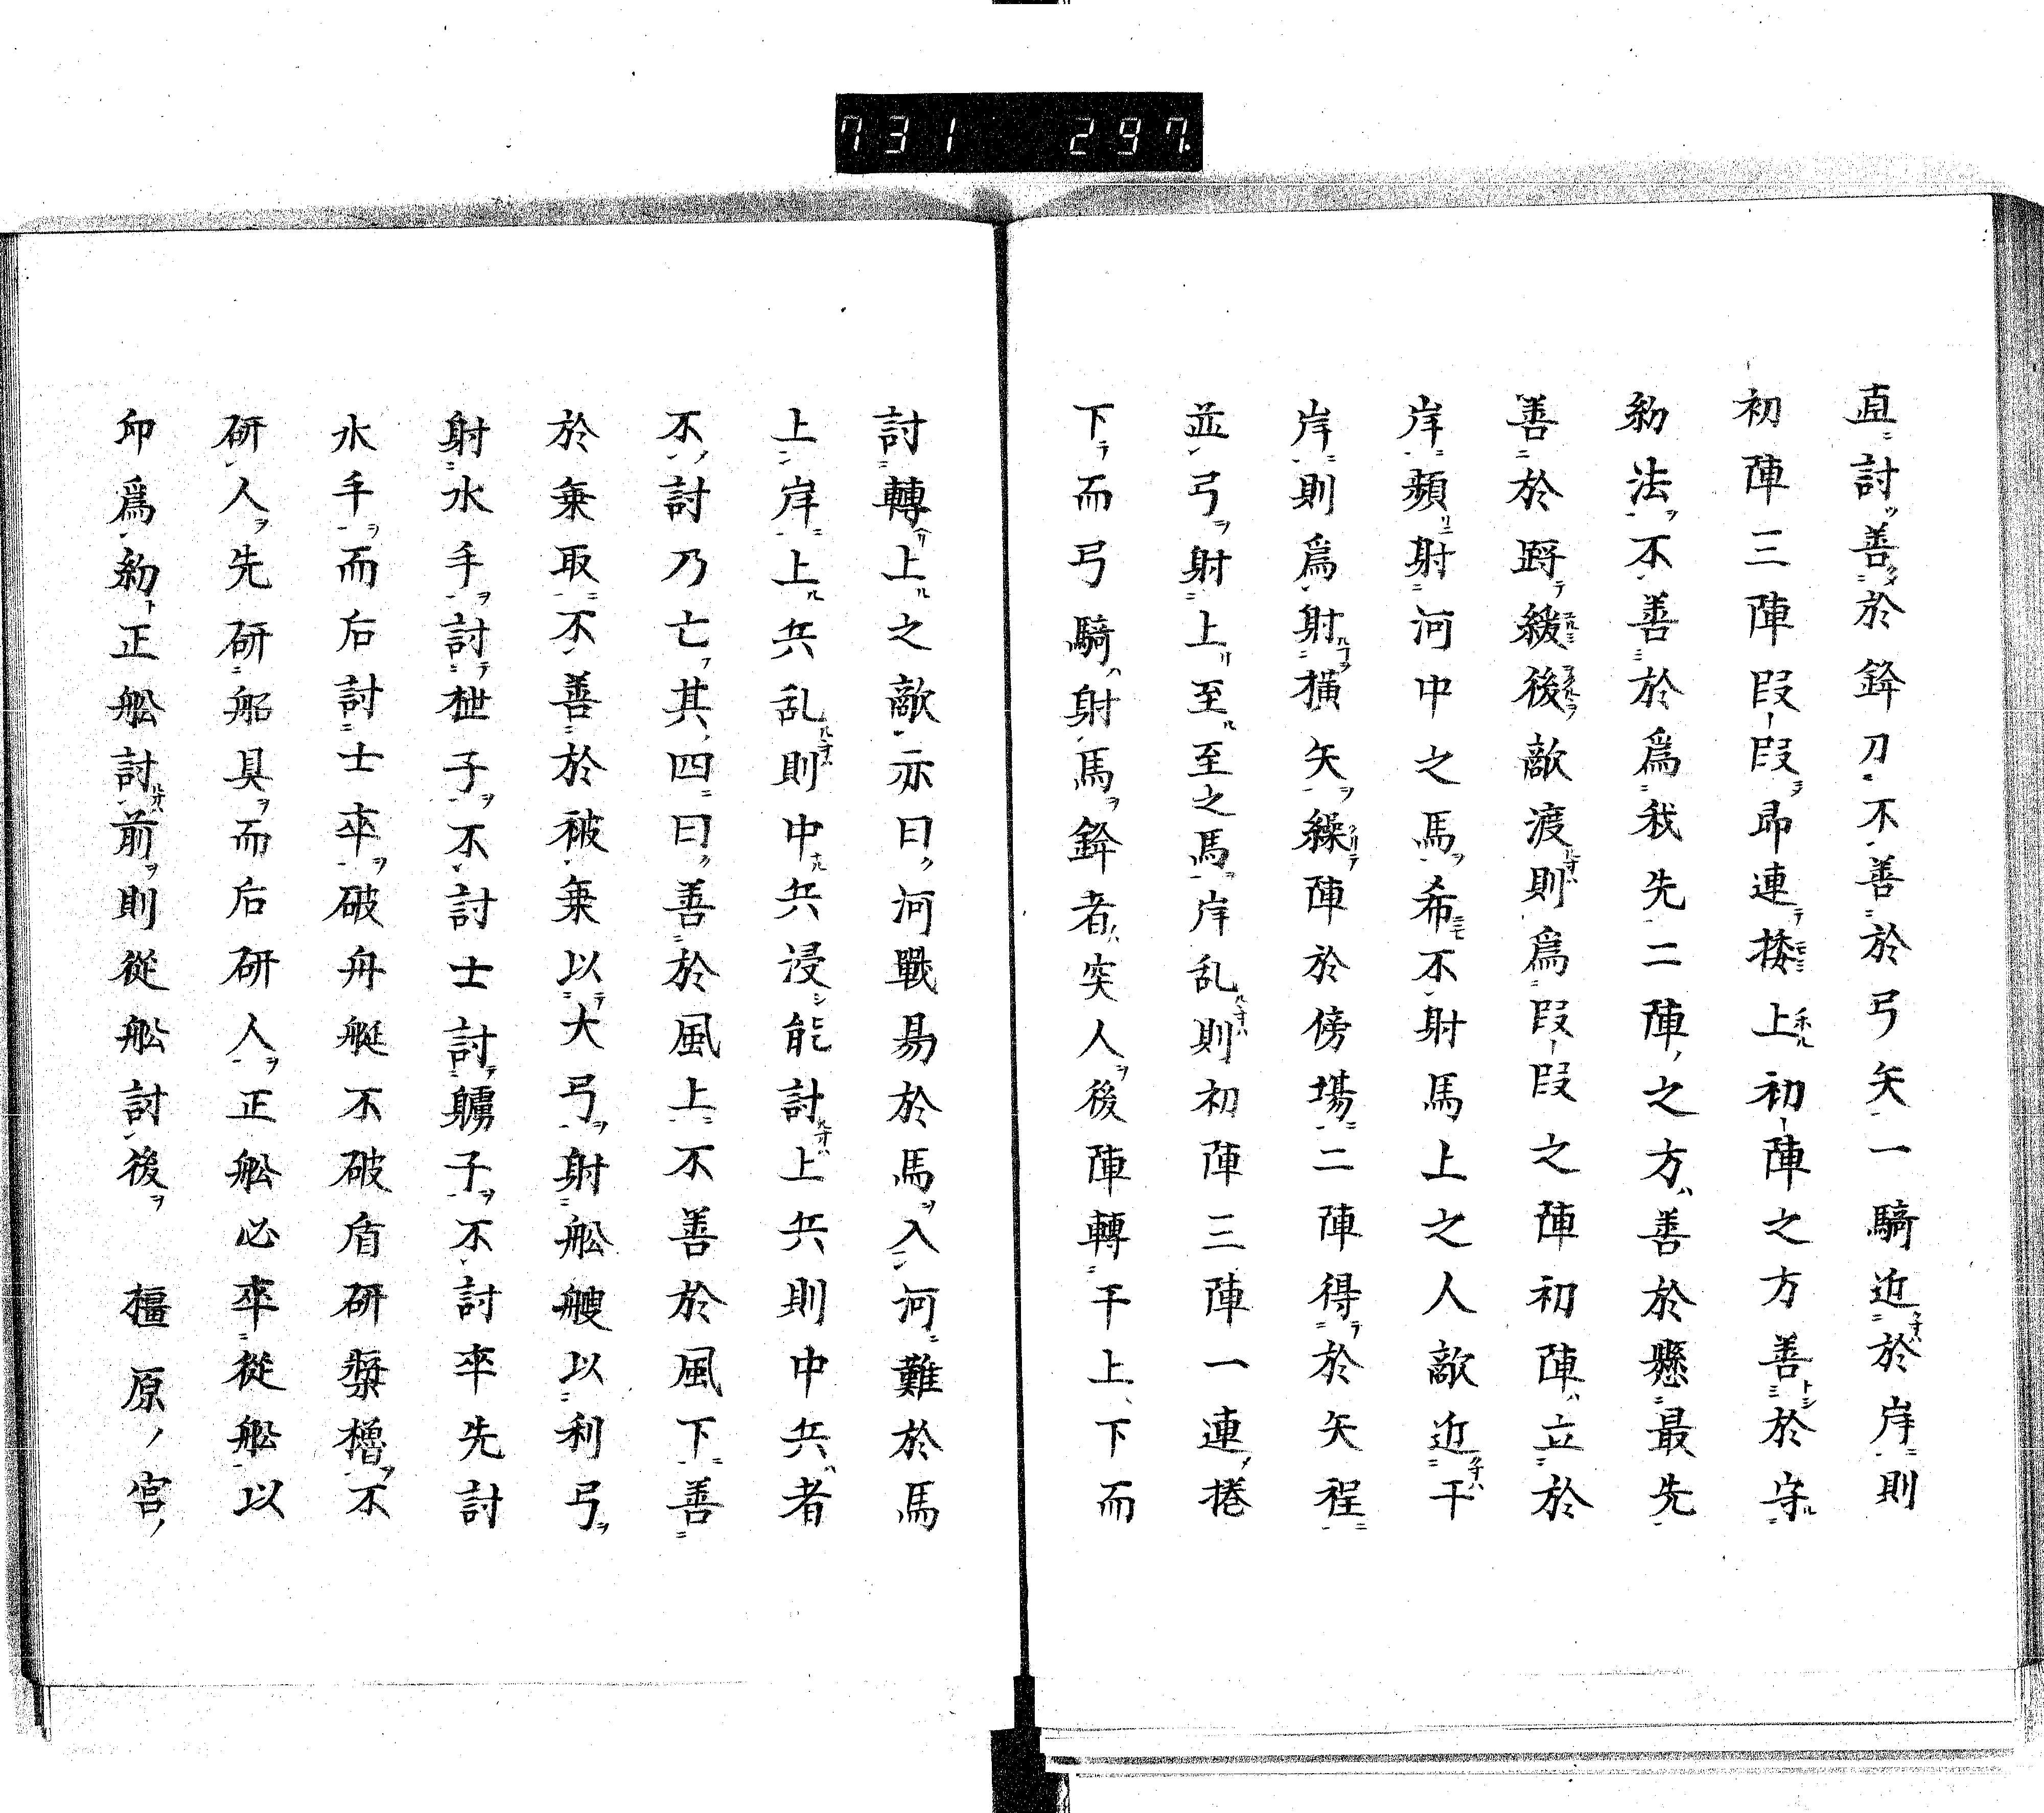 731 297.
直討善於鋒刀不善於弓矢一騎近於岸則
初陣三陣叚叚昂連捲上初陣之方善於守
法不善於爲我先二陣之方善於懸最先
善於緩後敵渡則爲叚叚之陣初陣立於
岸頻射河中之馬希不射馬上之人敵近干
岸則爲射横矢繰陣於傍場二陣得於矢程
並弓射上至至之馬岸乱則初陣三陣一連捲
下而弓騎射馬鋒者突人後陣轉干上下而
討轉上之敵亦曰河戰易於馬入河難於馬
上岸上兵乱則中兵浸能討上兵則中兵者
不討乃亡其四曰善於風上不善於風下善
於乗取不善於被乗以大弓射舩艘以利弓
射水手討枻子不討士討艣子不討卒先討
水手而后討士卒破舟艇不破盾研槳櫓不
研人先研船具而后研人正舩必卒從舩以
爲正舩討前則從舩討後 橿原ノ宮ノ